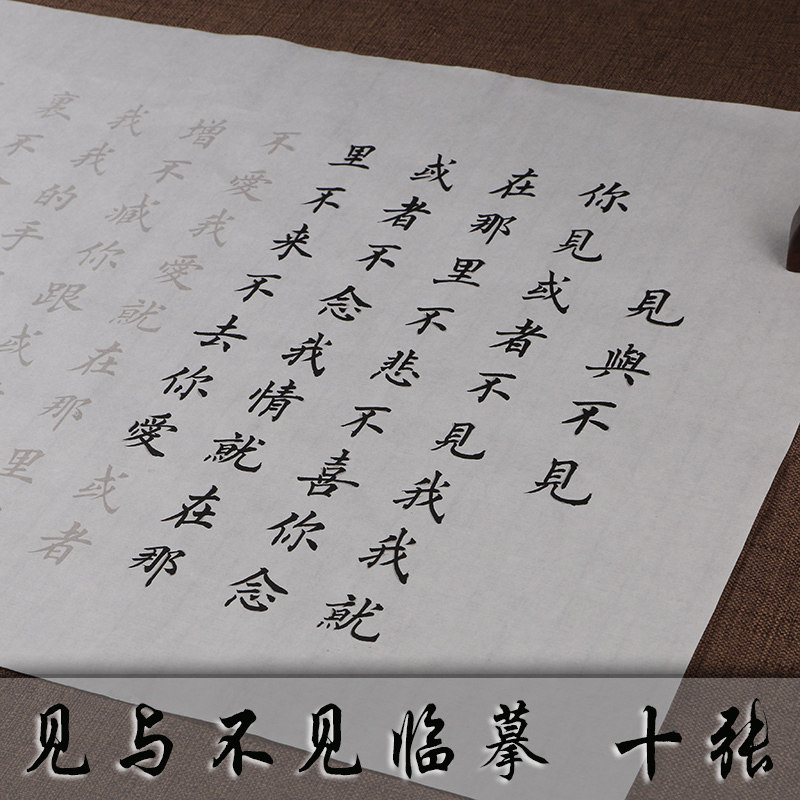 見與不見
你見或者不見我我就
在那里不悲不喜你念
或者不念我情就在那
里不来不去你愛或者
不愛我愛就在那里
增不減你跟或
我我的手
裏不
见与不见临摹 十张